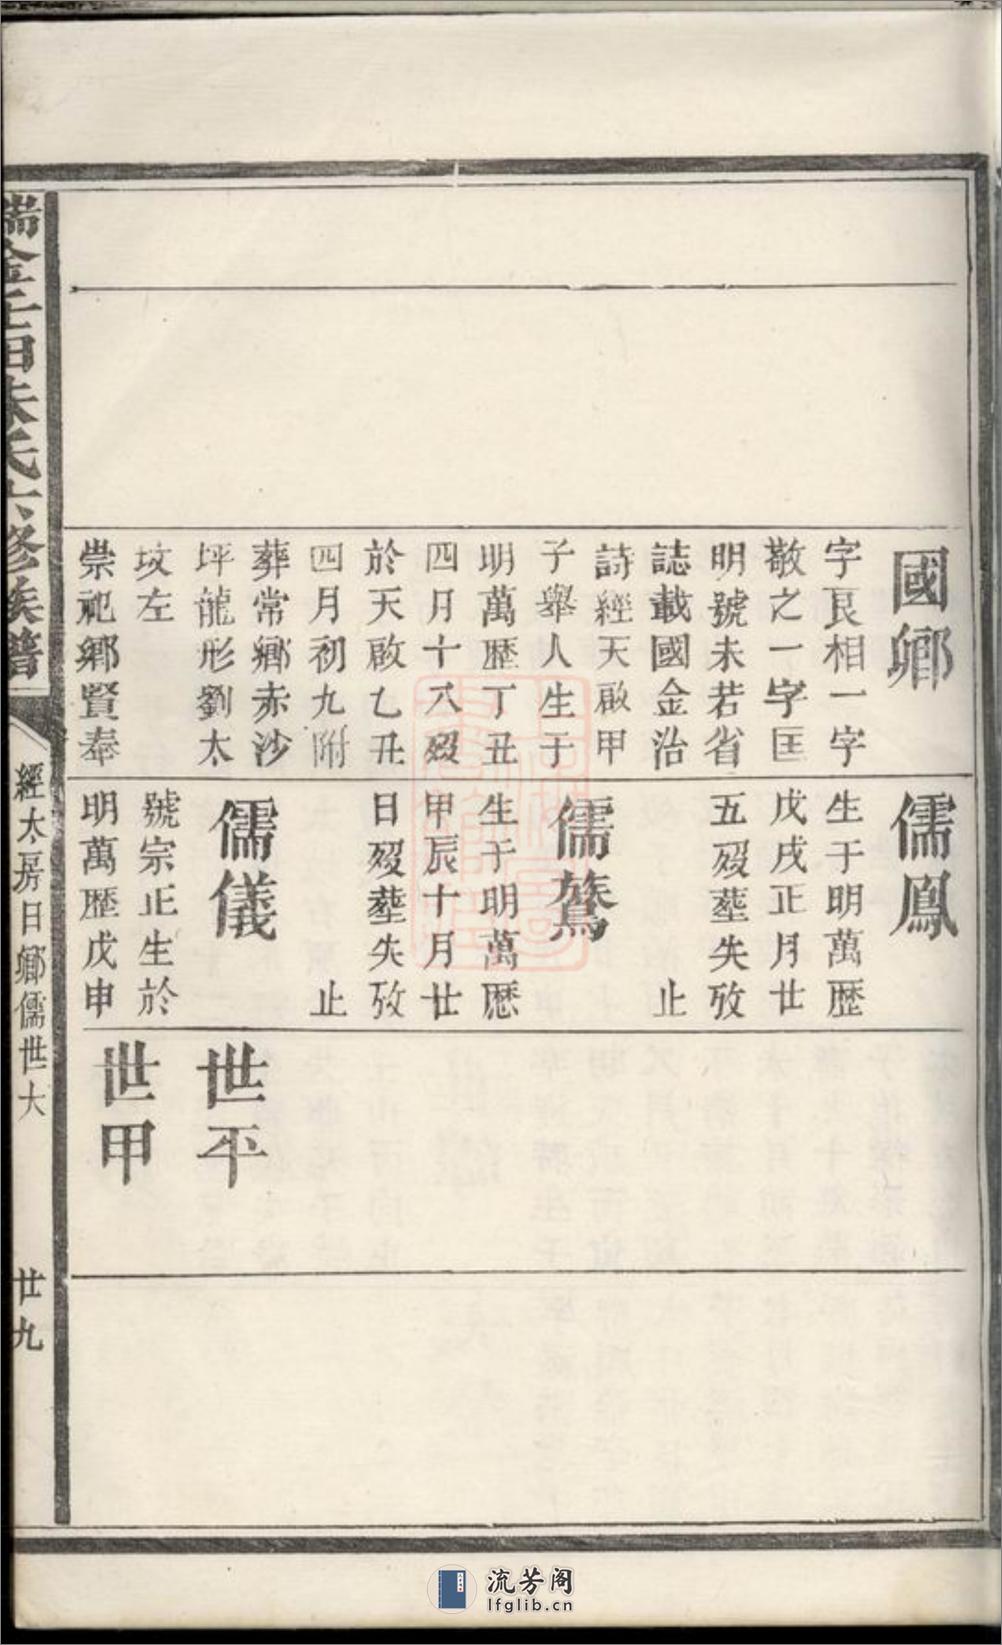 國鄉
字良相一字
敬之一字匡
明號未若省
誌載國金治
詩經天啟甲
子舉人生于
明萬歷丁丑
四月十八歿
於天啟乙丑
四月初九附
葬常鄉赤沙
坪龍形劉太
坟左
崇祀鄉賢奉
儒鳳
生于明萬歷
戊戌正月廿
五歿塟失攷
止
儒鶩
生于明萬歷
甲辰十月廿
日歿塟失攷
止
儒儀
號宗正生於
明萬歷戊申
世平
世甲
瑞金壬田朱氏六修族譜
經太房日鄉儒世大
廿九
流芳阁
lfglib.cn